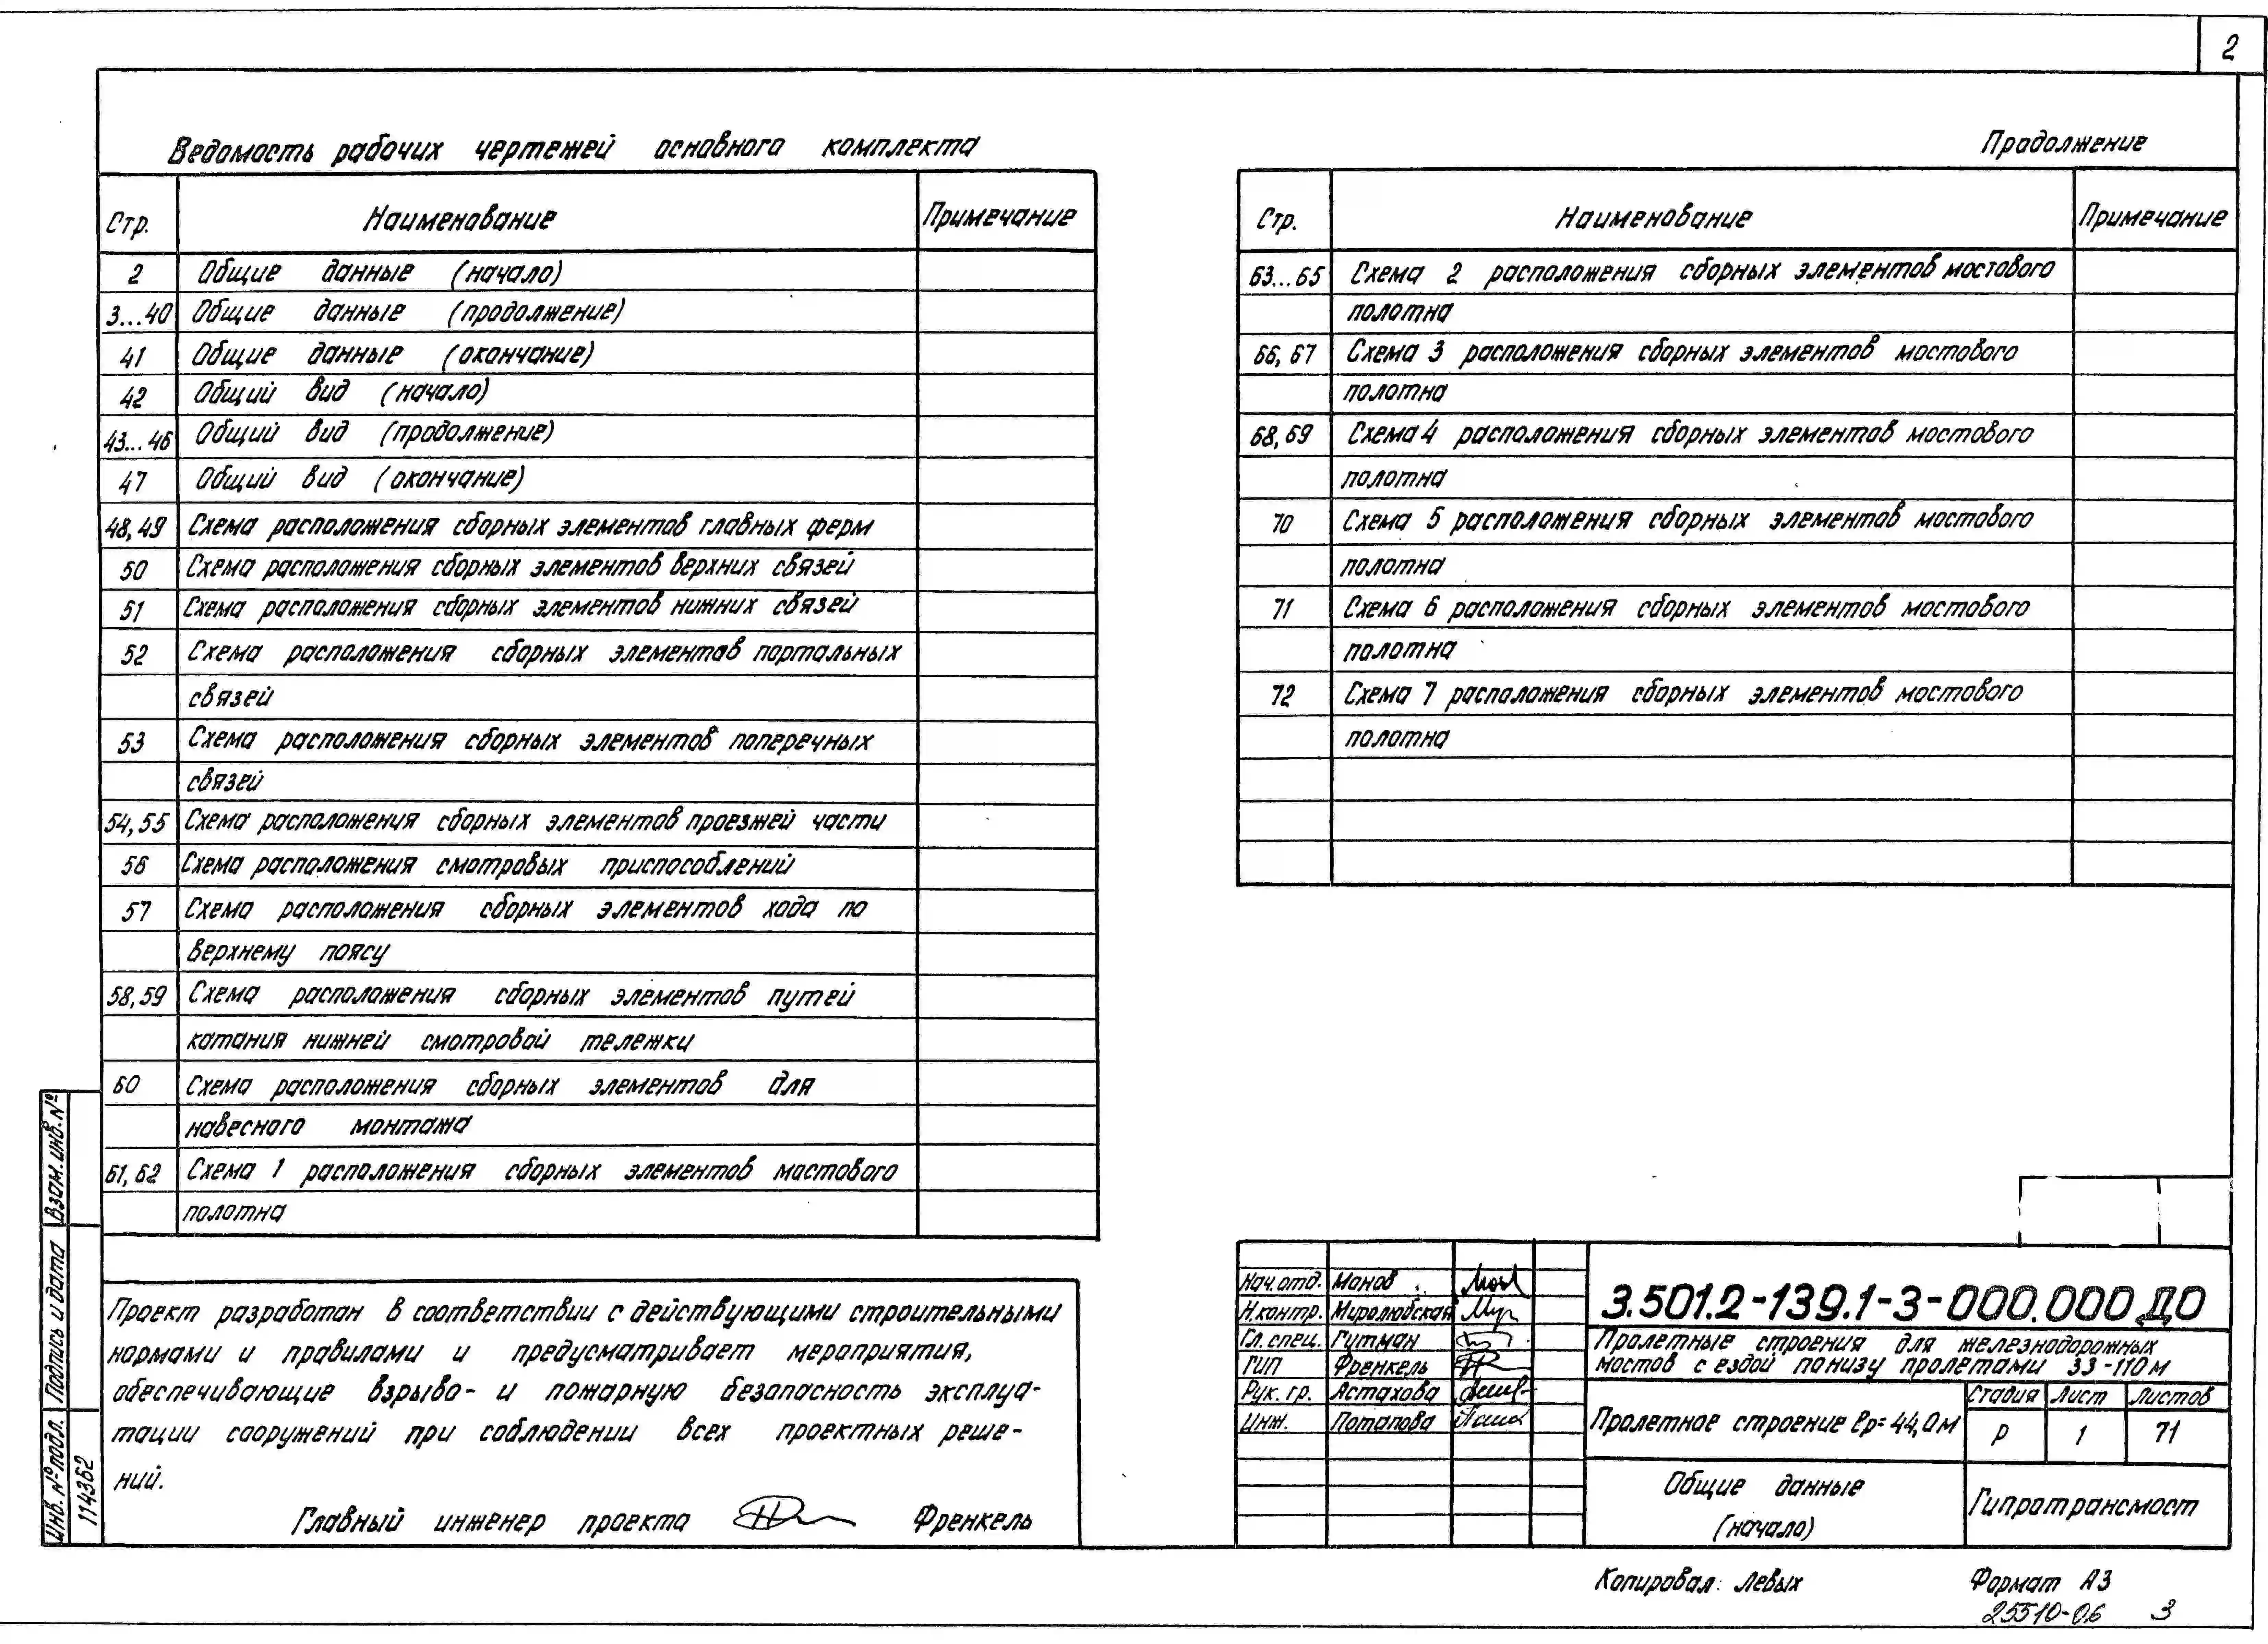 2
Ведомость рабочих чертежей основного комплекта
Стр. Наименование Примечание
2 Общие данные (начало)
3...40 Общие данные (продолжение)
41 Общие данные (окончание)
42 Общий вид (начало)
43...46 Общий вид (продолжение)
47 Общий вид (окончание)
48,49 Схема расположения сборных элементов главных ферм
50 Схема расположения сборных элементов верхних связей
51 Схема расположения сборных элементов нижних связей
52 Схема расположения сборных элементов портальных
связей
53 Схема расположения сборных элементов поперечных
связей
54,55 Схема расположения сборных элементов проезжей части
56 Схема расположения смотровых приспособлений
57 Схема расположения сборных элементов хода по
верхнему поясу
58,59 Схема расположения сборных элементов путей
катания нижней смотровой тележки
60 Схема расположения сборных элементов для
навесного монтажа
61,62 Схема 1 расположения сборных элементов мостового
полотна
Продолжение
Стр. Наименование Примечание
63...65 Схема 2 расположения сборных элементов мостового
полотна
66,67 Схема 3 расположения сборных элементов мостового
полотна
68,69 Схема 4 расположения сборных элементов мостового
полотна
70 Схема 5 расположения сборных элементов мостового
полотна
71 Схема 6 расположения сборных элементов мостового
полотна
72 Схема 7 расположения сборных элементов мостового
полотна
Проект разработан в соответствии с действующими строительными
нормами и правилами и предусматривает мероприятия,
обеспечивающие взрыво- и пожарную безопасность эксплуа-
тации сооружений при соблюдении всех проектных реше-
ний.
Главный инженер проекта Френкель
Взам. инв. №
Подпись и дата
Инв. № подл.
114362
Нач. отд. Манов
Н.контр. Миролюбская
Гл. спец. Гутман
ГИП Френкель
Рук. гр. Астахова
Инж. Потапова
3.501.2-139.1-3-000.000 ДО
Пролетные строения для железнодорожных
мостов с ездой понизу пролетами 33-110 м
Пролетное строение ℓр=44,0м
Стадия Лист Листов
Р 1 71
Общие данные
(начало)
Гипротрансмост
Копировал: Левых
Формат А3
25510-06 3